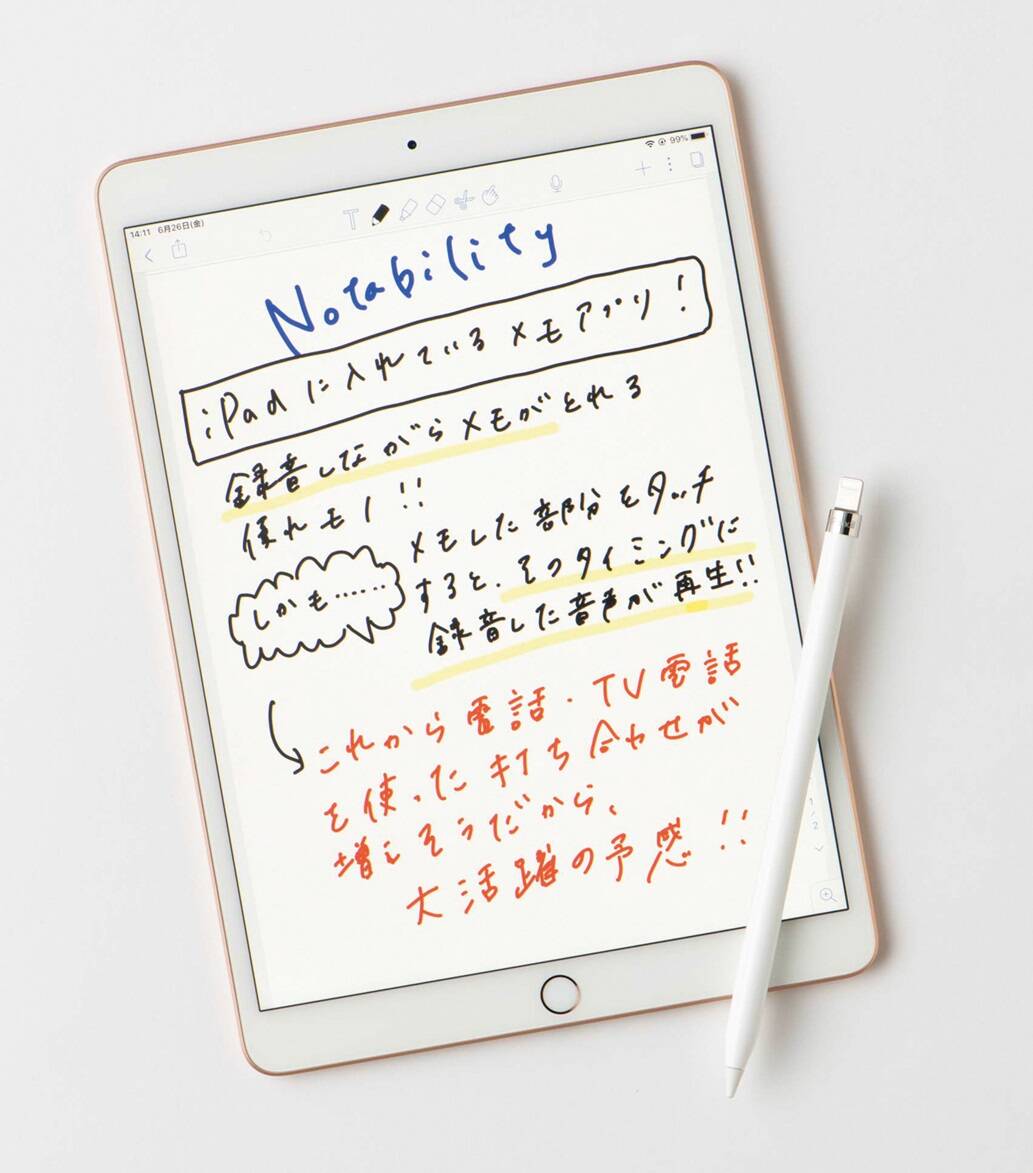 14:11 6月26日(金)
99%
Notability
iPadに入れているメモアプリ!
録音しながらメモがとれる
優れモノ!!
しかも……
メモした部分をタッチ
すると、そのタイミングに
録音した音声が再生!!
これから電話・TV電話
を使った打ち合わせが
増えそうだから、
大活躍の予感!!
1
2